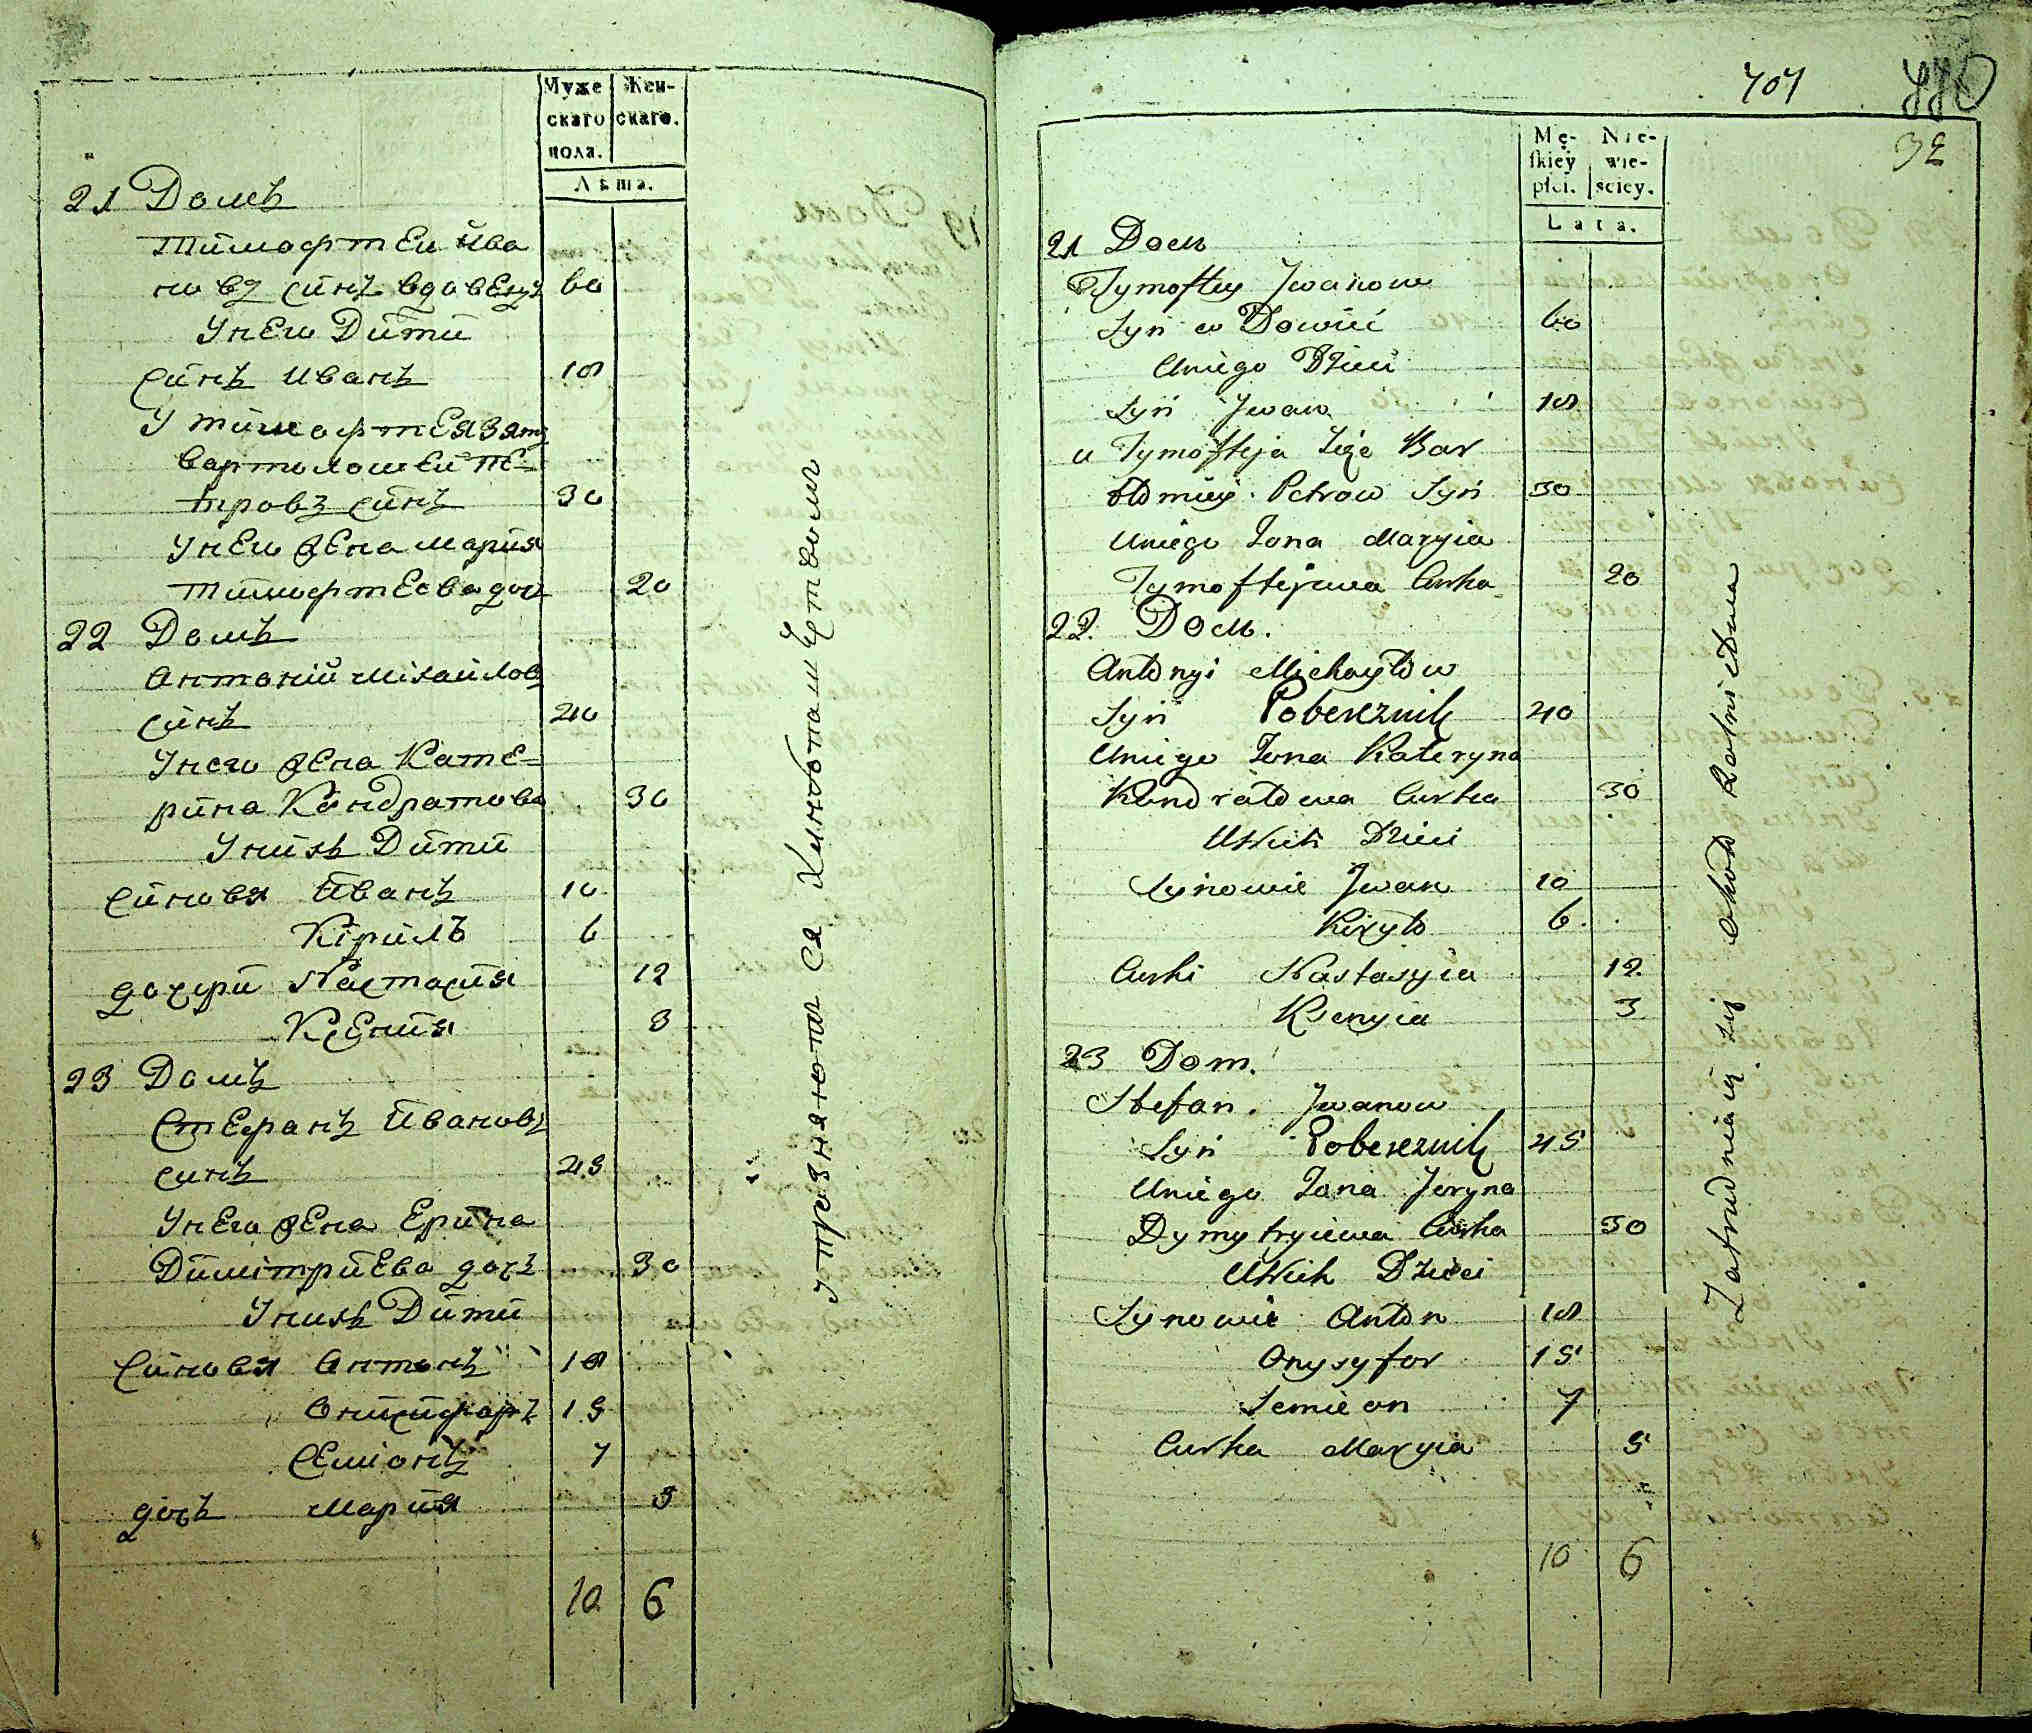 Муже
скаго
пола.
Жен-
скаго.
Лѣта.
21 Домъ
Тимофтей Ива
новъ синъ вдовецъ 60
Унего Дити
синъ Иванъ 18
У тимофтея зять
вартиломей пе-
тровъ синъ 30
Унего жена мария
тимофтеева доч 20
22 Домъ
Антоній Міхайловъ
синъ 40
Унего жена Кате-
рина Кондратова 30
Унихъ Дити
синовя Иванъ 10
Кірилъ 6
дочери Настасия 12
Ксения 3
23 Домъ
Стефанъ Ивановъ
синъ 45
Унего жена Ерина
Димітриева дочъ 30
Унихъ Дити
синовя Антонъ 18
Онисифоръ 15
Семіонъ 7
дочъ Мария 5
10 6
упражняются хлибопашертвомъ
707
770
32
Mę-
skiey
płci.
Nie-
wie-
sciey.
Lata.
21 Dom
Tymoftey Jwanow
Syn w Dowiec 60
Uniego Dzieci
Syn Jwan 18
u Tymofteja Zięc Bar
tłomiey Petrow Syn 30
Uniego Zona Maryia
Tymofteiewa Curka 20
22. Dom.
Antonyi Michayłow
Syn Pobereznik 40
Uniego Zona Kateryna
Kondratowa Curka 30
UNich Dzieci
Synowie Jwan 10
Kiryło 6
Curki Nastasyia 12
Ksenyia 3
23 Dom.
Stefan Jwanow
Syn Poberezniк 45
Uniego Zona Jeryna
Dymytryiewa Curka 30
UNich Dzieci
Synowie Anton 18
Onysyfor 15
Semieon 7
Curka Maryia 5
10 6
Zatrudniaią się okoł Rolnictwa